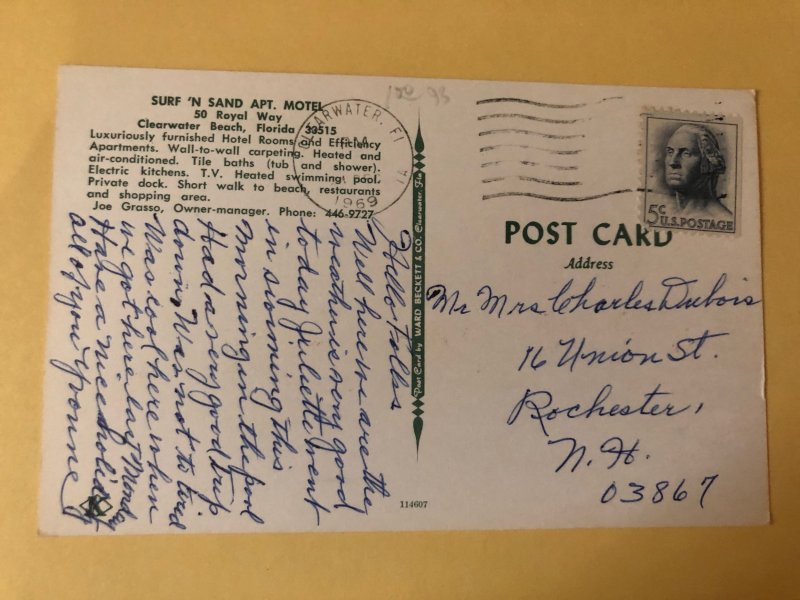 SURF 'N SAND APT. MOTEL
50 Royal Way
Clearwater Beach, Florida 33515
Luxuriously furnished Hotel Rooms and Efficiency
Apartments. Wall-to-wall carpeting. Heated and
air-conditioned. Tile baths (tub and shower).
Electric kitchens. T.V. Heated swimming pool.
Private dock. Short walk to beach, restaurants
and shopping area.
Joe Grasso, Owner-manager. Phone: 446-9727
Hello Folks
Well here we are the
weather is very good
today Juliette went
in swimming this
morning in the pool
Had a very good trip
down. Was not to tired
Was cool here when
we got here last Monday
Have a nice holiday
all of you Yvonne
Post Card by WARD BECKETT & CO. Clearwater, Fla.
114607
CLEARWATER, FL
1969
5c
U.S. POSTAGE
POST CARD
Address
Mr Mrs Charles Dubois
16 Union St.
Rochester,
N. H.
03867